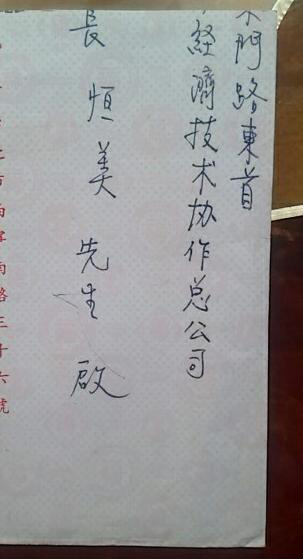 門路東首
經濟技术协作总公司
長恒美先生啟
南路三十六號